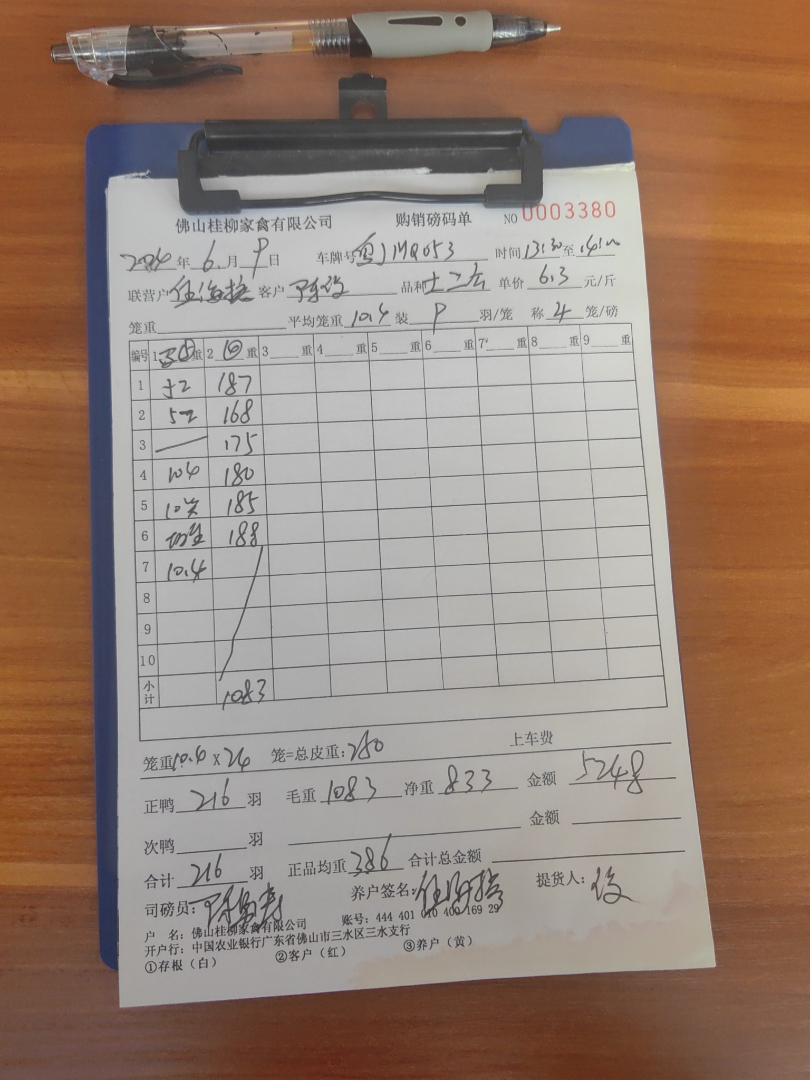 佛山桂柳家禽有限公司 购销磅码单 NO 0003380
2024年 6月 9日 车牌号 粤JMQ053 时间 13:30至14:
联营户 客户 陈 品种 土二 单价 6.3 元/斤
笼重 平均笼重 10.4 装 9 羽/笼 称 4 笼/磅
编号 1 重 2 重 3 重 4 重 5 重 6 重 7 重 8 重 9 重
1 52 187
2 52 168
3 175
4 104 180
5 185
6 188
7 10.4
8
9
10
小计 1083
笼重10.4 X 24 笼=总皮重: 250 上车费
正鸭 216 羽 毛重 1083 净重 833 金额 5248
次鸭 羽 金额
合计 216 羽 正品均重 386 合计总金额
司磅员: 陈 养户签名: 提货人:
户 名: 佛山桂柳家禽有限公司 账号: 444 401 010 400 169 29
开户行: 中国农业银行广东省佛山市三水区三水支行
①存根(白) ②客户(红) ③养户(黄)